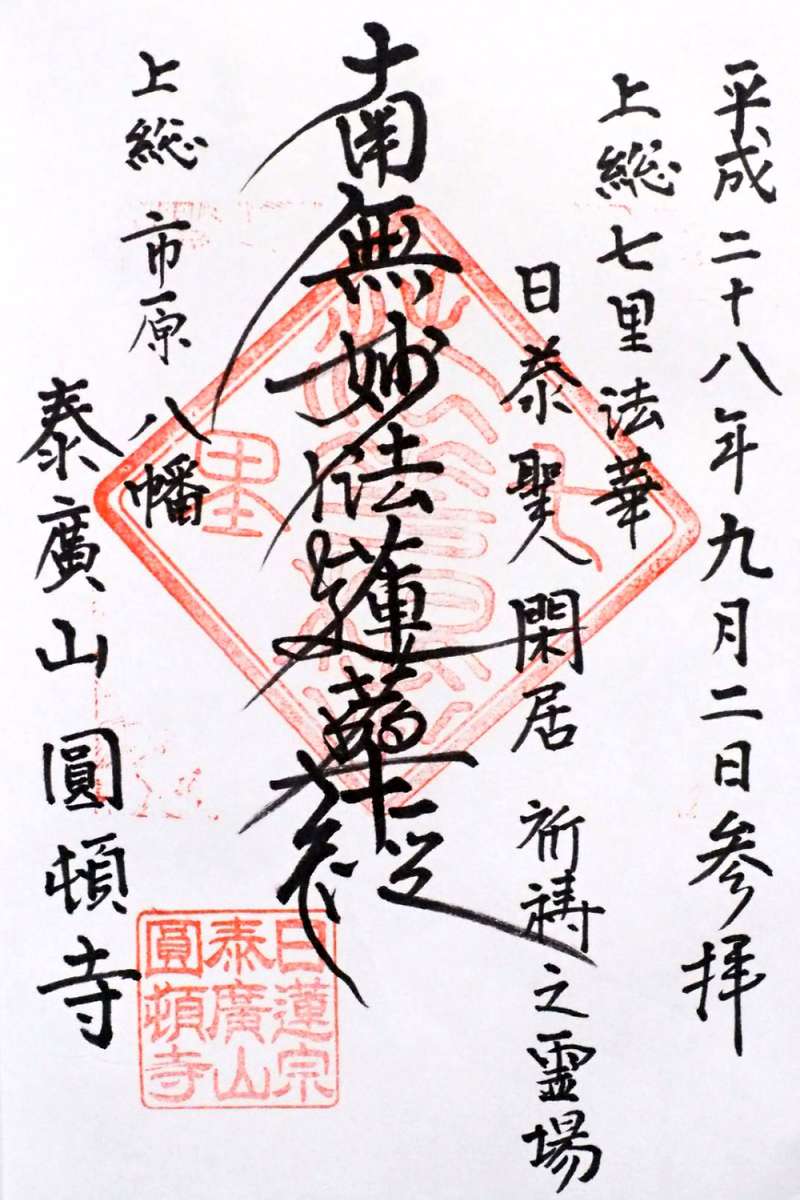 平成二十八年九月二日参拝
上総七里法華
日泰聖人閑居 祈祷之霊場
南無妙法蓮華経
上総 市原八幡
泰廣山圓頓寺
日蓮宗
泰廣山
圓頓寺